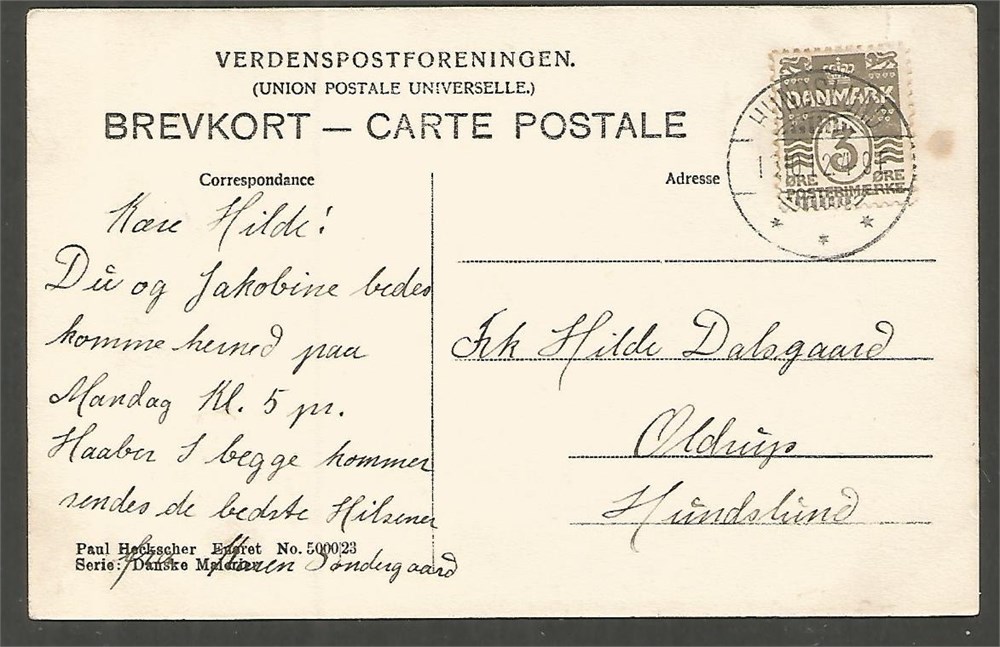 VERDENSPOSTFORENINGEN.
(UNION POSTALE UNIVERSELLE.)
BREVKORT — CARTE POSTALE
DANMARK
3
ØRE ØRE
POSTFRIMÆRKE
Correspondance
Adresse
Kære Hilde!
Du og Jakobine bedes
komme herned paa
Mandag Kl. 5 pr.
Haaber I begge kommer
sendes de bedste Hilsener
fra Maren Søndergaard
Paul Heckscher Eneret No. 500023
Serie: Danske Malerier
Frk Hilde Dalsgaard
Oldrup
Hundslund